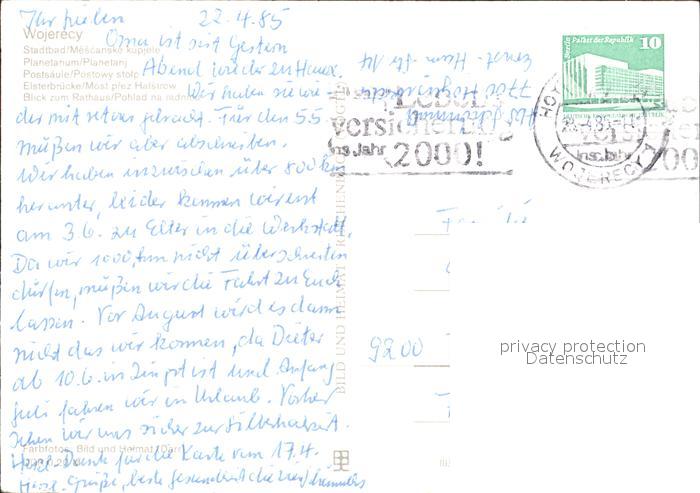 Ihr Lieben 22.4.85
Wojerecy
Oma ist seit Gestern
Stadtbad/Měšćanske kupjele
Planetarium/Planetarij
Abend wieder zu Hause.
Postsäule/Postowy stolp
Elsterbrücke/Móst přez Halštrow
Wir haben sie
Blick zum Rathaus/Pohlad na radnicu
der mit etwas gebracht. Für den 5.5.
müßen wir aber abschreiben.
Wir haben inzwischen über 800 km
herunter, leider kommen wir erst
am 3.6. zu Elter in die Werkstatt.
Da wir 1000 km nicht überschreiten
dürfen, müßen wir die Fahrt zu Euch
lassen. Vor August wird es dann
nicht das wir kommen, da Dieter
ab 10.6. in ist und Anfang
Juli fahren wir in Urlaub. Vorher
sehen wir uns sicher zur Silberhochzeit.
Farbfotos: Bild und Heimat (Darr)
Herzl. Dank für die Karte vom 17.4.
Herzl. Grüße, beste Gesundheit die
BILD UND HEIMAT REICHENBACH
Abs
7700 Hoyerswerda
Lebens
versicherung
ins Jahr 2000!
Palast der Republik
Berlin 10
HOY
WOJERECY
ins Jahr
Famili
9200
privacy protection
Datenschutz